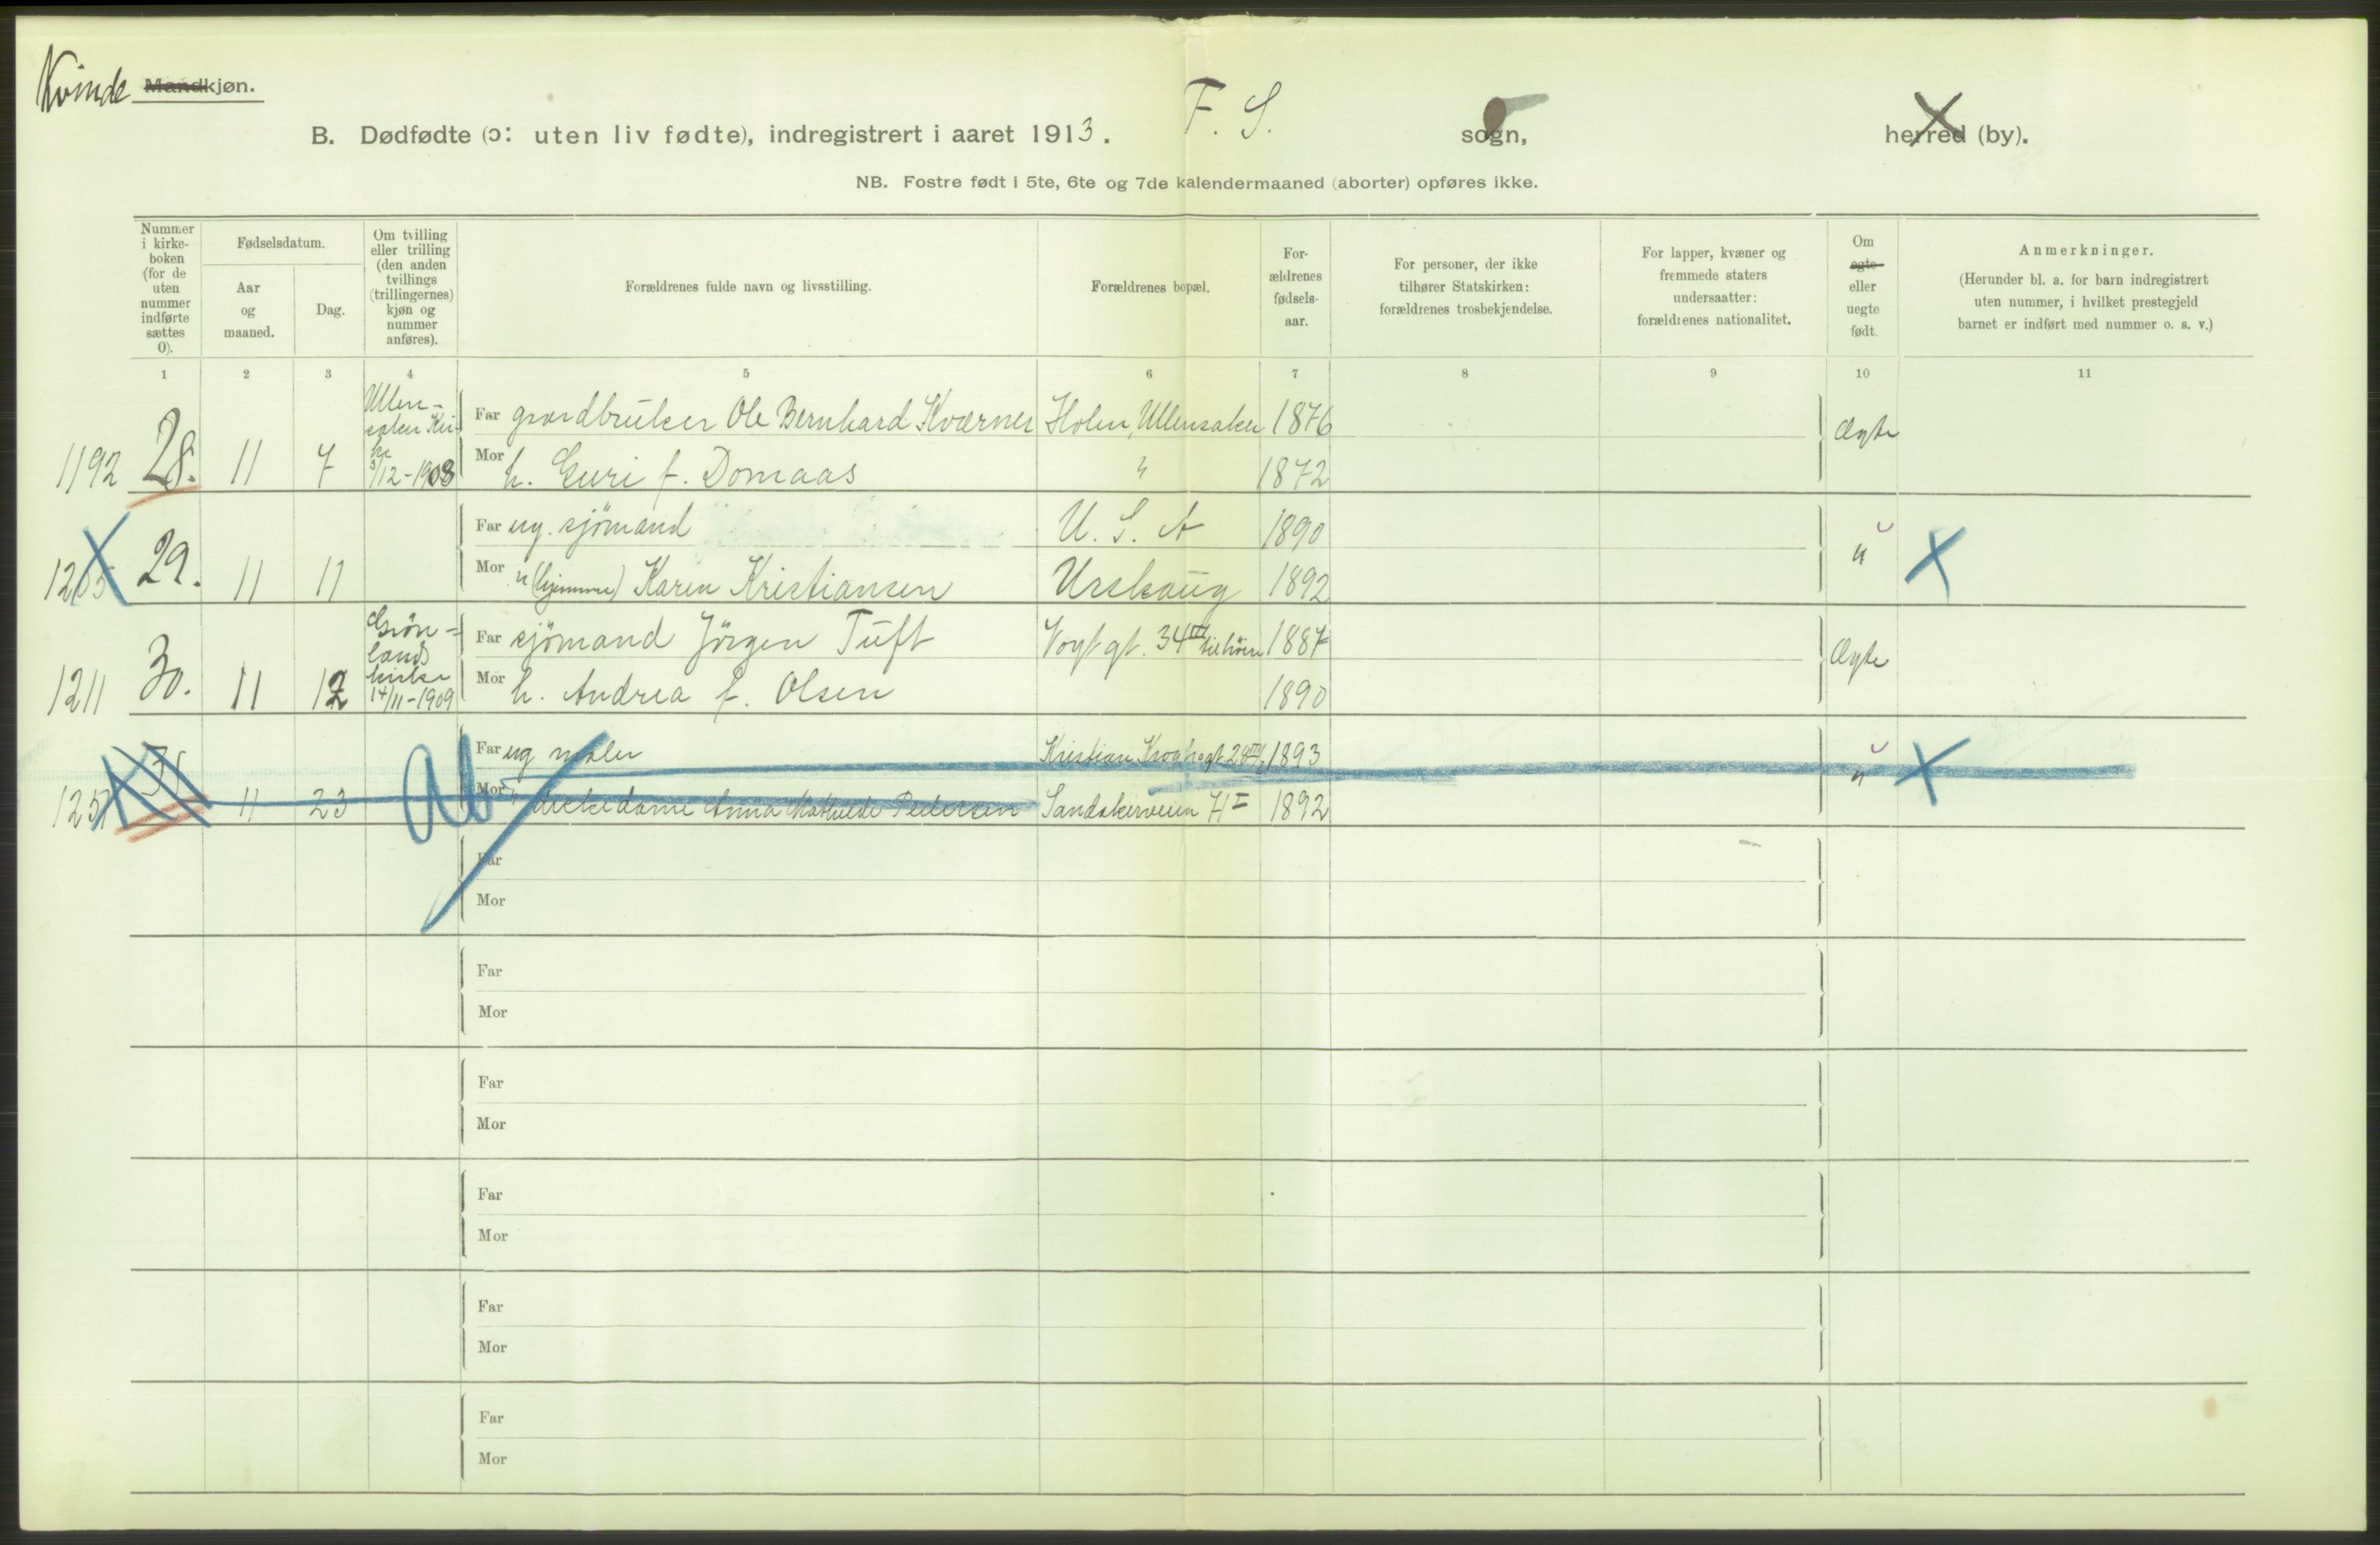 Kvinde Mandkjøn.
B. Dødfødte (ɔ: uten liv fødte), indregistrert i aaret 1913. F. S. sogn, herred (by).
NB. Fostre født i 5te, 6te og 7de kalendermaaned (aborter) opføres ikke.
Nummer
i kirke-
boken
(for de
uten
nummer
indførte
sættes
0).
Fødselsdatum.
Aar
og
maaned.
Dag.
Om tvilling
eller trilling
(den anden
tvillings
(trillingernes)
kjøn og
nummer
anføres).
Forældrenes fulde navn og livsstilling.
Forældrenes bopæl.
For-
ældrenes
fødsels-
aar.
For personer, der ikke
tilhører Statskirken:
forældrenes trosbekjendelse.
For lapper, kvæner og
fremmede staters
undersaatter:
forældrenes nationalitet.
Om
egte
eller
uegte
født.
Anmerkninger.
(Herunder bl. a. for barn indregistrert
uten nummer, i hvilket prestegjeld
barnet er indført med nummer o. s. v.)
1 2 3 4 5 6 7 8 9 10 11
Ullen-
saker Kir-
ke
3/12-1908
Far gaardbruker Ole Bernhard Kværner Holm, Ullensaker 1876
1192 28. 11 7 Mor h. Guri f. Domaas " 1872 Ægte
Far ug. sjömand U. S. A 1890
1205 29. 11 11 Mor u (hjemme) Karen Kristiansen Urskoug 1892 u
Grön-
lands
kirke
14/11-1909
Far sjömand Jörgen Tuft Vogt gt. 34 III til höire 1887
1211 30. 11 12 Mor h. Andrea f. Olsen 1890 Ægte
Far ug maler Kristian Kroghsgt 28 1893
31 11 23 Ab Mor " Anna Mathilde Pedersen Sandakerveien 71 I 1892 u
Far
Mor
Far
Mor
Far
Mor
Far
Mor
Far
Mor
Far
Mor